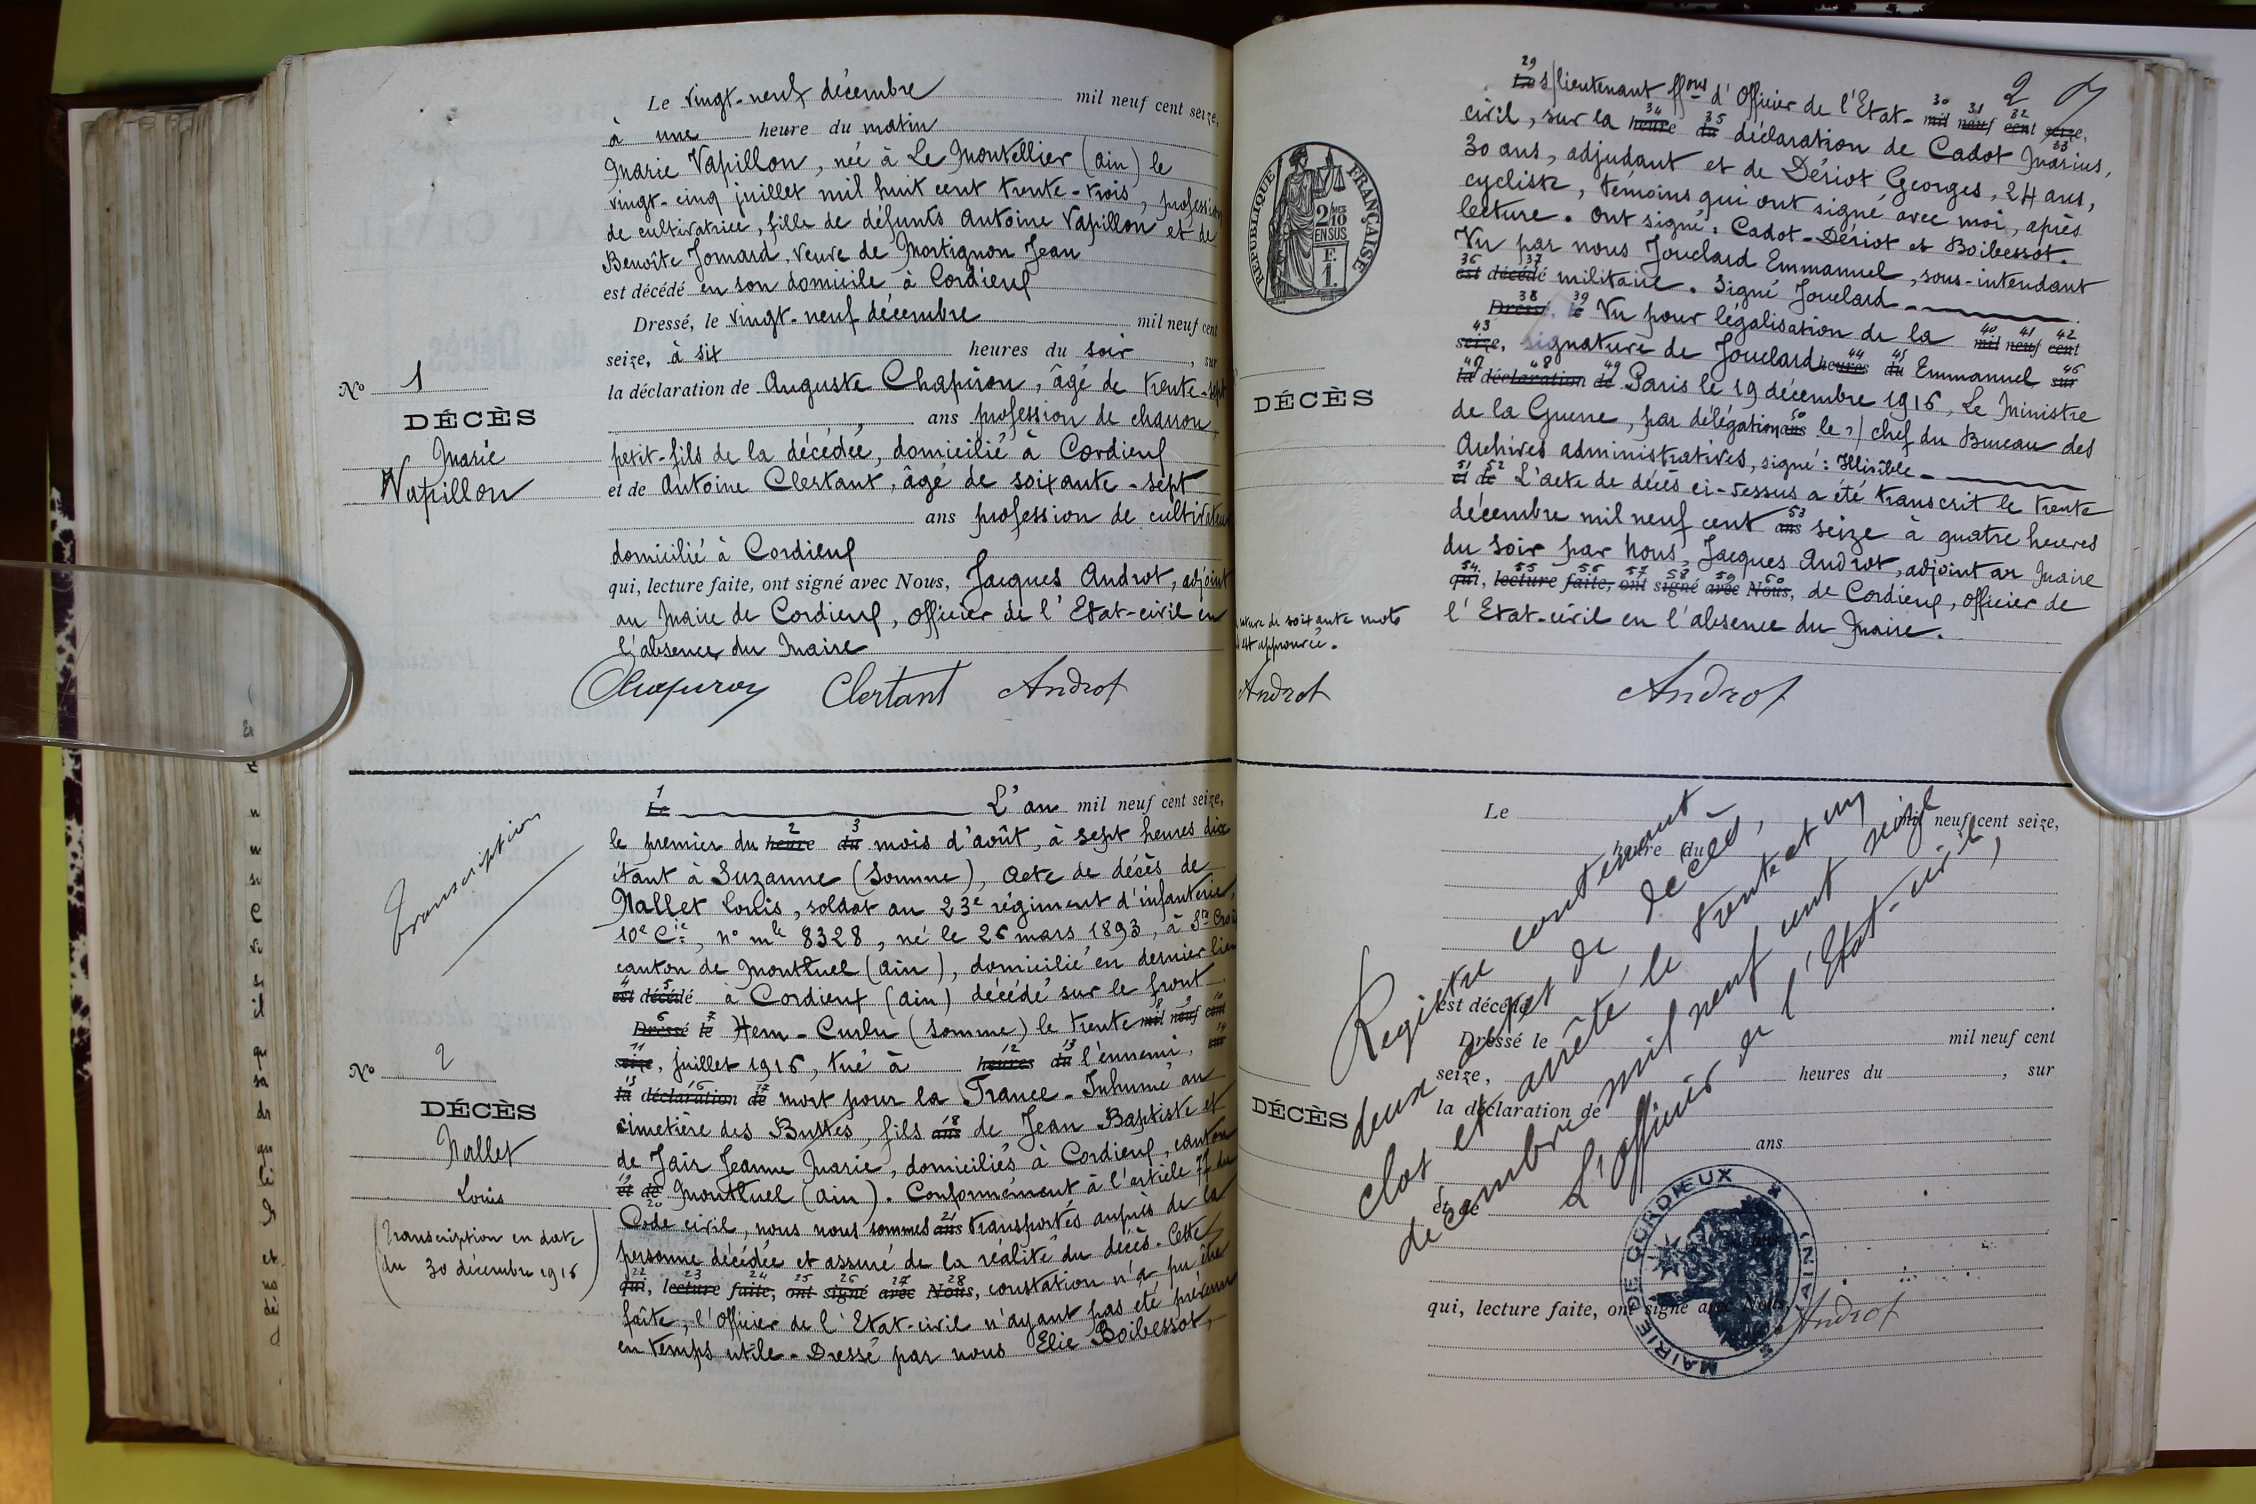 Le vingt-neuf décembre mil neuf cent seize,
à une heure du matin
Marie Vapillon, née à Le Montellier (Ain) le
vingt-cinq juillet mil huit cent trente-trois, profession
de cultivatrice, fille de défunts Antoine Vapillon et de
Benoîte Jomard, veuve de Mortignon Jean
est décédé en son domicile à Cordieux
Dressé, le vingt-neuf décembre mil neuf cent
seize, à six heures du soir, sur
No 1
la déclaration de Auguste Chapiron, âgé de trente-sept
DÉCÈS
ans profession de charron,
Marie
petit-fils de la décédée, domicilié à Cordieux
Vapillon
et de Antoine Clertant, âgé de soixante-sept
ans profession de cultivateur
domicilié à Cordieux
qui, lecture faite, ont signé avec Nous, Jacques Androt, adjoint
au Maire de Cordieux, officier de l'Etat-civil en
l'absence du Maire
Clertant Androt
Transcription
1
Le L'an mil neuf cent seize,
2 3
le premier du heure du mois d'août, à sept heures dix
étant à Suzanne (Somme), Acte de décès de
Nallet Louis, soldat au 23e régiment d'infanterie,
10e Cie, n° mle 8328, né le 26 mars 1893, à Ste Croix
canton de Montluel (Ain), domicilié en dernier lieu
4 5
est décédé à Cordieux (Ain) décédé sur le front
6 7 8 9 10
Dressé le Hem-Curlu (Somme) le trente mil neuf cent
11 12 13 14
seize, juillet 1916, tué à heures du l'ennemi, sur
No 2
15 16 17
la déclaration de mort pour la France - Inhumé au
DÉCÈS
18
cimetière des Buttes, fils ans de Jean Baptiste et
Nallet
de Jair Jeanne Marie, domiciliés à Cordieux, canton
Louis
19
et de Montluel (Ain). Conformément à l'article 77 du
20 21
Code civil, nous nous sommes ans transportés auprès de la
(Transcription en date
du 30 décembre 1916)
personne décédée et assuré de la réalité du décès. Cette
22 23 24 25 26 27 28
qui, lecture faite, ont signé avec Nous, constation n'a pu être
faite, l'Officier de l'Etat-civil n'ayant pas été prévenu
en temps utile - Dressé par nous Elie Boibessot,
2
29 30 31 32 33
Le s/lieutenant ffons d'Officier de l'Etat- mil neuf cent seize,
34 35
civil, sur la heure du déclaration de Cadot Marius,
30 ans, adjudant et de Dériot Georges, 24 ans,
cycliste, témoins qui ont signé avec moi, après
lecture. Ont signé: Cadot - Dériot et Boibessot.
Vu par nous Jouclard Emmanuel, sous-intendant
36 37
est décédé militaire. Signé Jouclard
38 39 40 41 42
Dressé, le Vu pour légalisation de la mil neuf cent
43 44 45 46
seize, signature de Jouclard heures du Emmanuel sur
47 48 49
la déclaration de Paris le 19 décembre 1916, Le Ministre
DÉCÈS
50
de la Guerre, par délégation ans le s/chef du Bureau des
Archives administratives, signé: Illisible
51 52
et de L'acte de décès ci-dessus a été transcrit le trente
53
décembre mil neuf cent ans seize à quatre heures
du soir par Nous, Jacques Androt, adjoint au Maire
54 55 56 57 58 59 60
qui, lecture faite, ont signé avec Nous, de Cordieux, officier de
l'Etat-civil en l'absence du Maire.
de soixante mots
est approuvée.
Androt Androt
REPUBLIQUE FRANÇAISE
2/10 EN SUS
F. 1.
Le mil neuf cent seize,
heure du
est décédé
Dressé le mil neuf cent
seize, heures du, sur
la déclaration de
DÉCÈS
ans
et de
qui, lecture faite, ont signé avec Nous,
Registre contenant
deux actes de décès,
clos et arrêté le trente et un
décembre mil neuf cent seize
L'Officier de l'Etat-civil,
Androt
MAIRIE DE CORDIEUX (AIN)